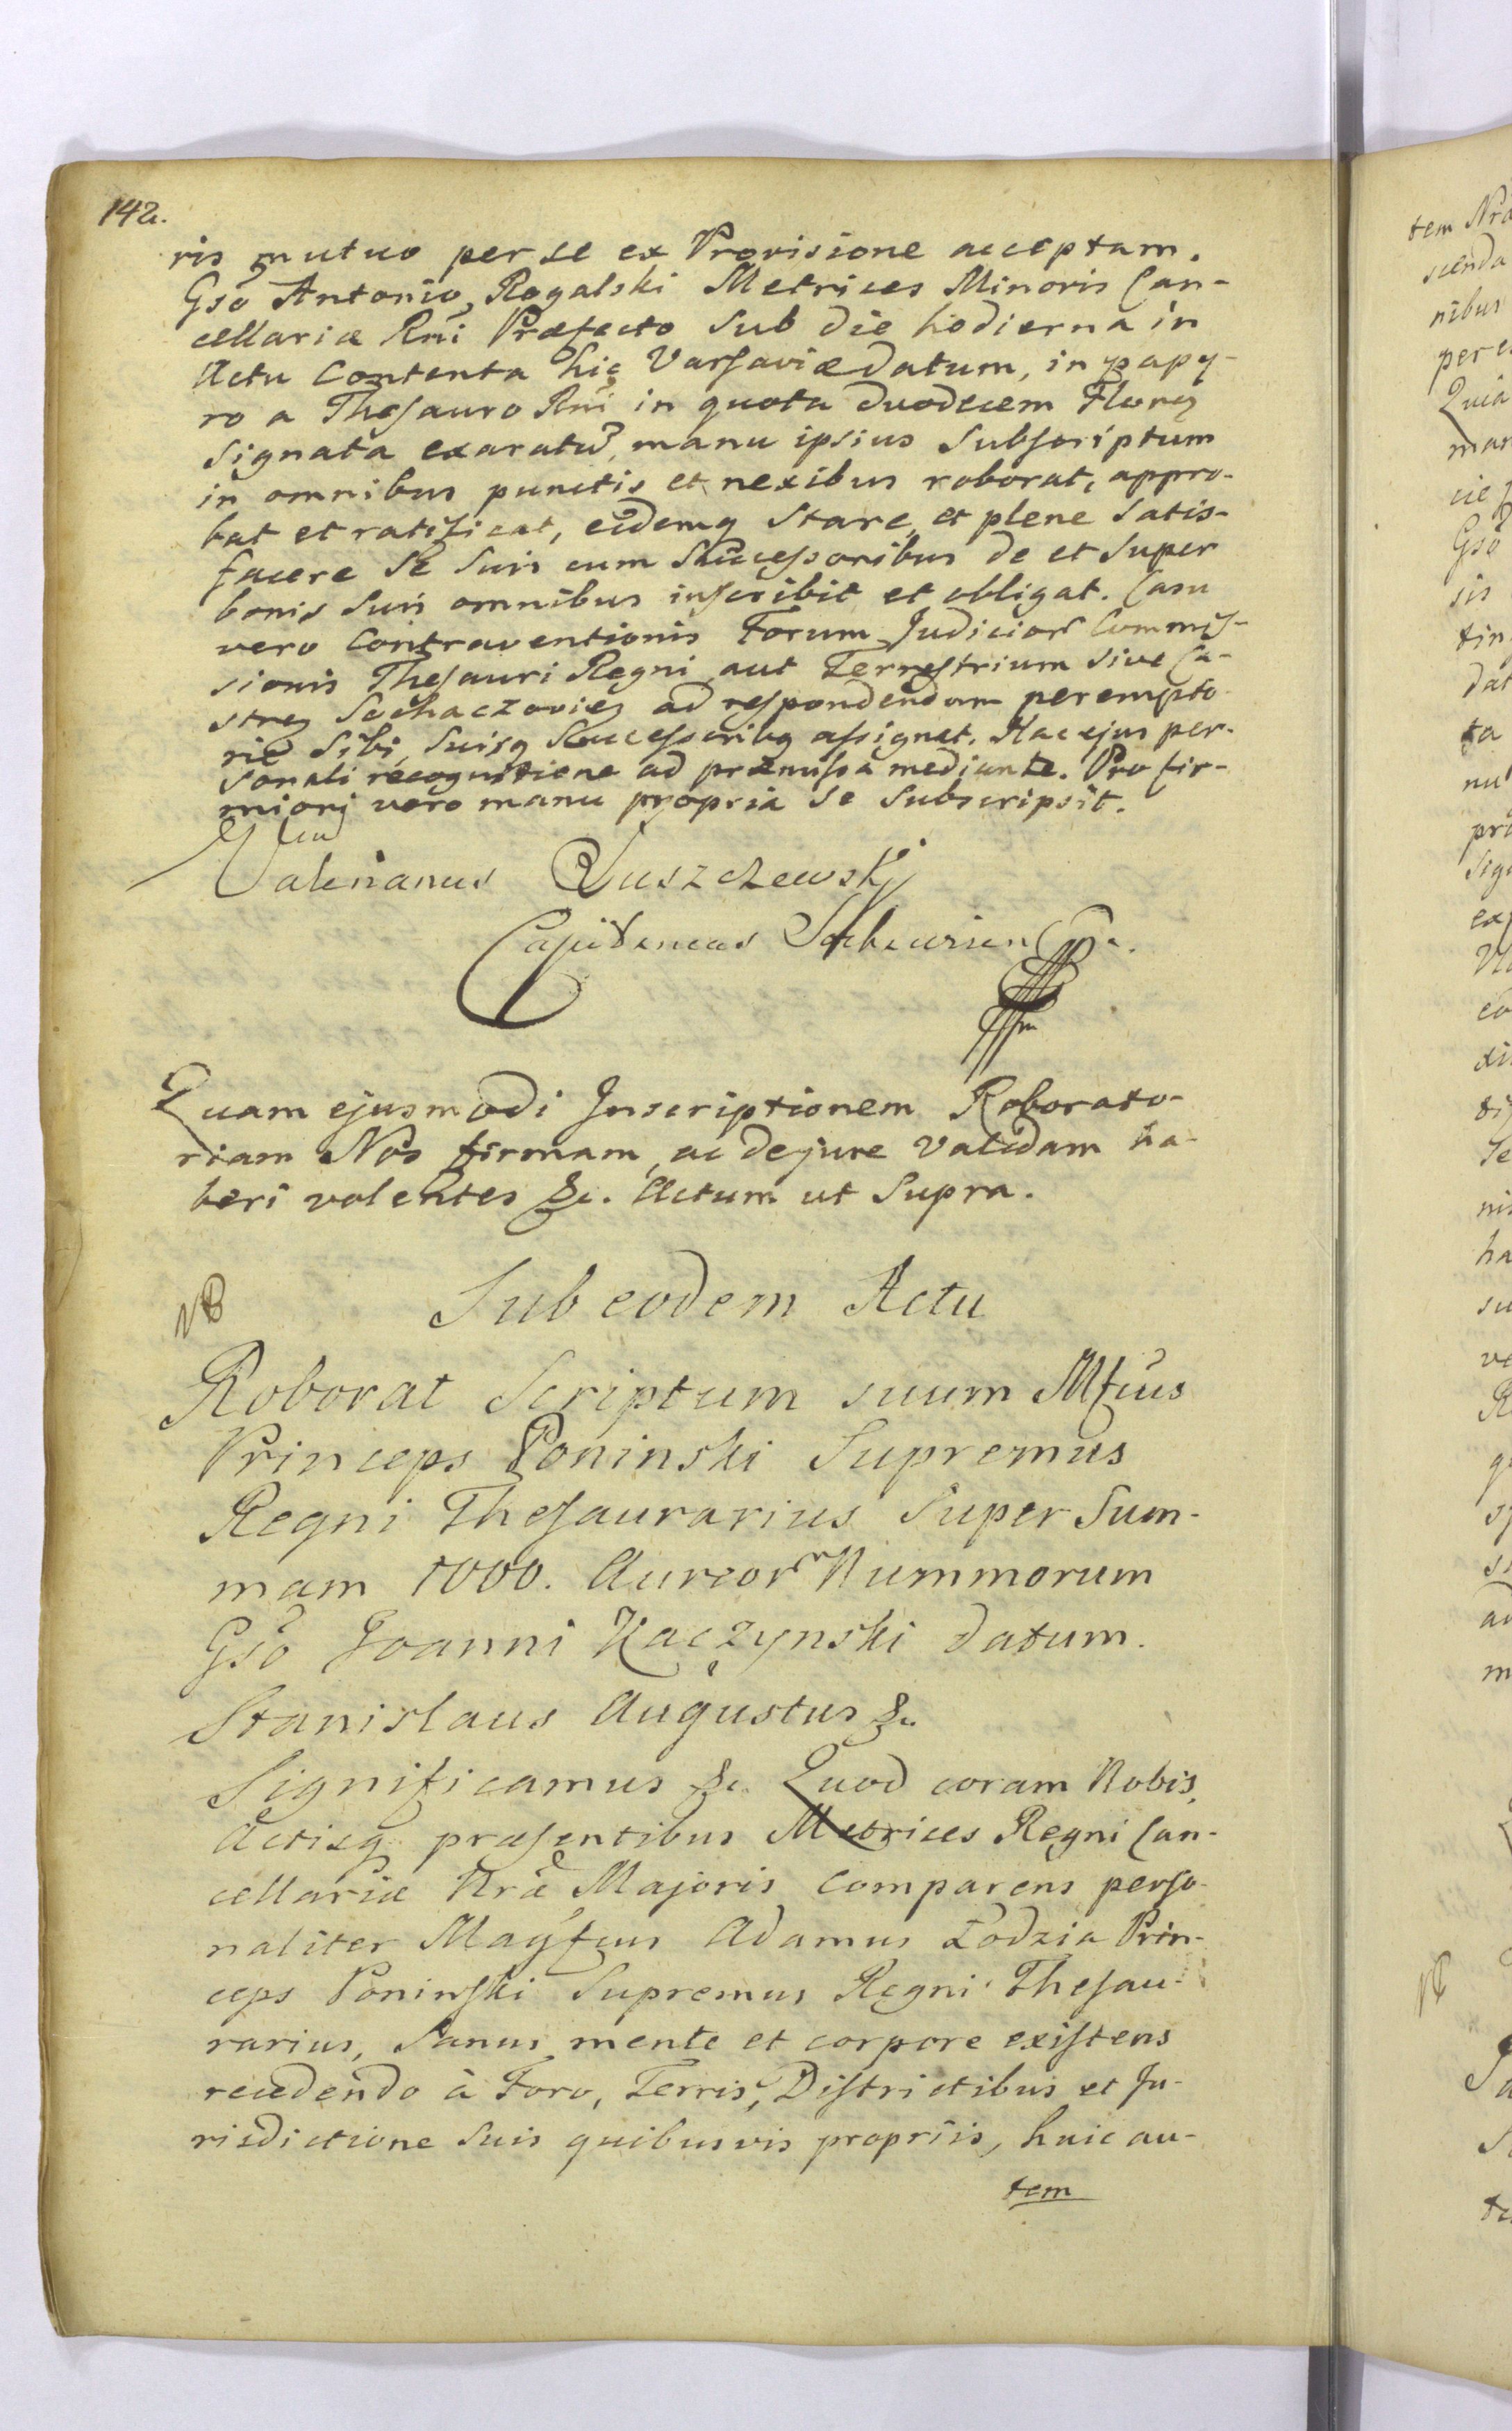 142.
ris mutuo per se ex Provisione acceptam.
Gsō Antonio Rogalski Metrices Minoris Can-
cellariæ Rni Præfecto Sub die hodierna in
Actu Contenta hic Varsaviæ datum, in papy-
ro a Thesauro Rni in quota duodecem Floreq
signata exaratū, manu ipsius Subscriptum
in omnibus punctis et nexibus roborat, appro-
bat et ratificat, eidemq stare, et plene satis-
facere se suis cum Successoribus de et super
bonis suis omnibus inscribit et obligat. Casu
vero Contraventionis Forum Judicior Commis-
sionis Thesauri Regni aut Terrestrium sive Ca-
streq Sochaczovieq ad respondendum perempto-
rie sibi, suisq Successoribq assignat. Hac ejus per-
sonali recognitione ad præmissa mediante. Pro fir-
miori vero manu propria se subscripsit.
Valerianus Łuszczewskj
Capitaneus
Quam ejusmodi Inscriptionem Roborato-
riam Nos firmam, ac de jure Validam ha-
beri volentes &c. Actum ut Supra.
NB
Sub eodem Actu
Roborat Scriptum suum Mfcus
Princeps Poninski Supremus
Regni Thesaurarius Super Sum-
mam 1000. Aureor Nummorum
Gsō Joanni Kaczynski datum.
Stanislaus Augustus &c.
Significamus &c. Quod coram Nobis,
Actisq præsentibus Metrices Regni Can-
cellariæ Nræ Majoris comparens perso-
naliter Magfcus Adamus Łodzia Prin-
ceps Poninski Supremus Regni Thesau-
rarius, Sanus mente et corpore existens
recedendo à Foro, Terris, Districtibus et Ju-
risdictione suis quibusvis propriis, huic au-
tem